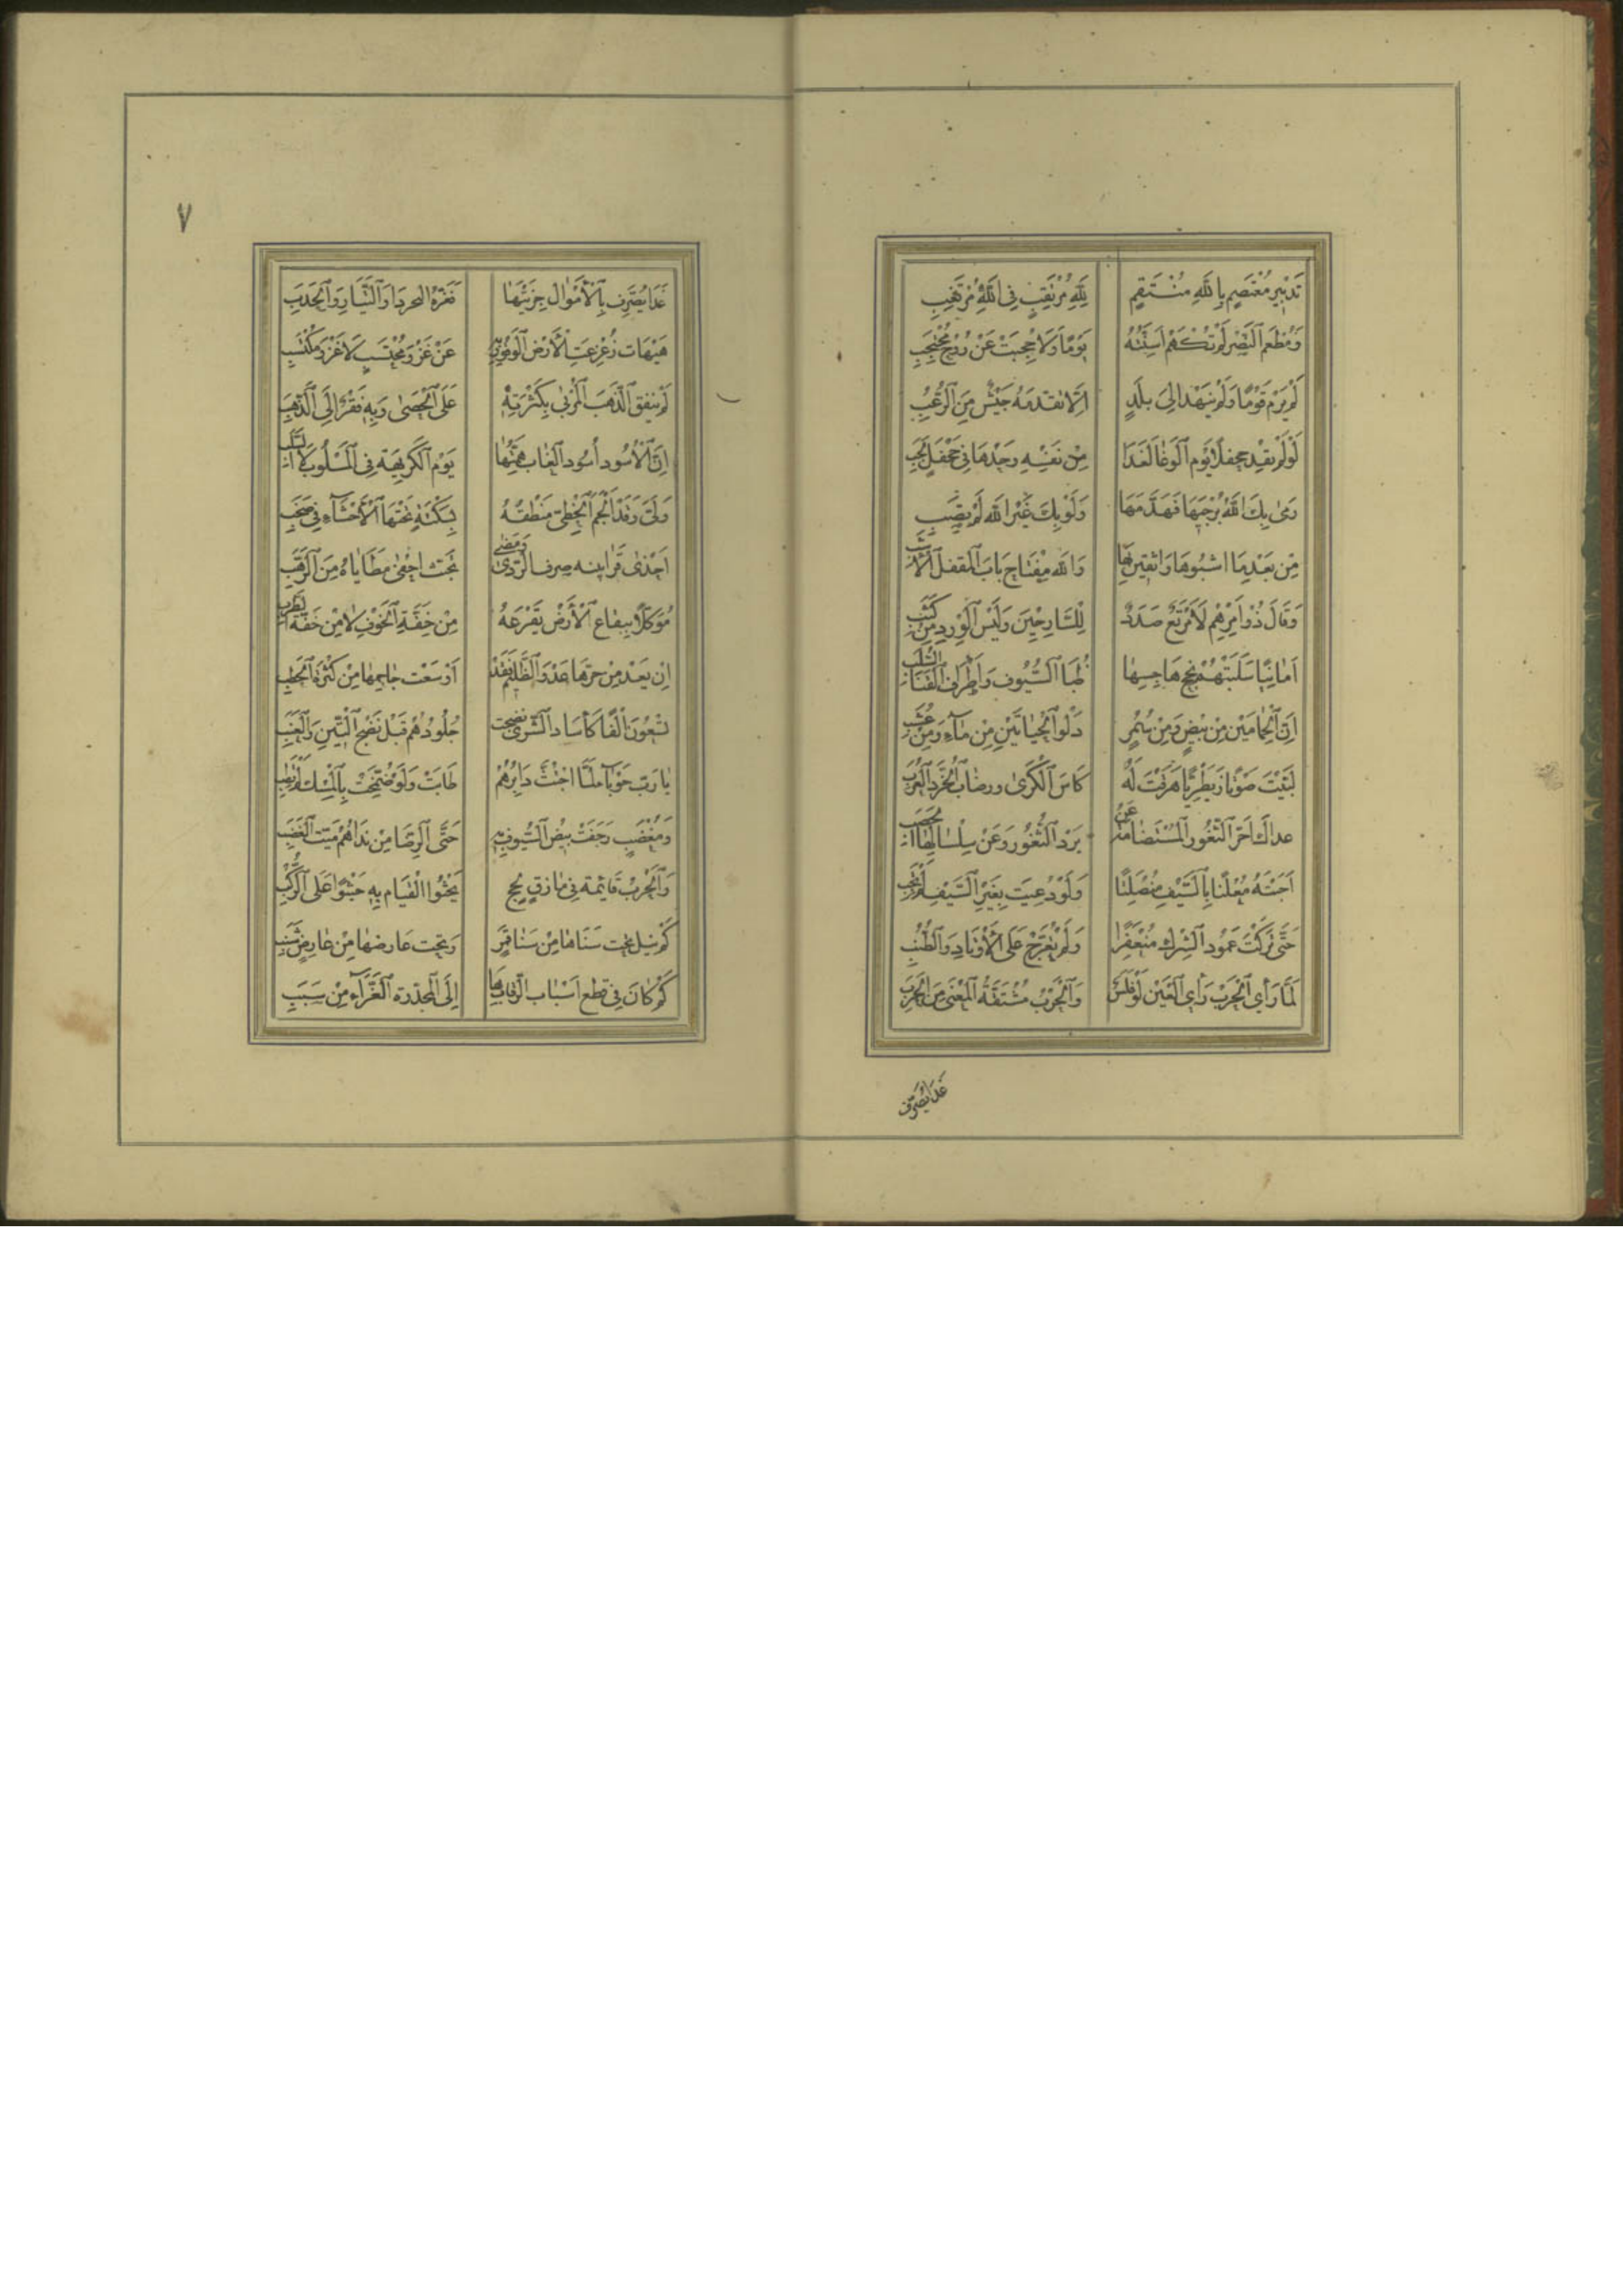 تَدْبِيرُ مُعْتَصِمٍ بِاللهِ مُنْتَقِمٍ لِلهِ مُرْتَقِبٍ فِي اللهِ مُرْتَغِبِ
وَمُطْعَمِ النَّصْرِ لَمْ تَكْهَمْ اَسِنَّتُهُ يَوْمًا وَلَا حُجِبَتْ عَنْ رُوحِ مُحْتَجِبِ
لَمْ يَرْمِ قَوْمًا وَلَمْ يَنْهَدْ اِلَى بَلَدٍ اِلَّا تقدمهُ جَيْشٌ مِنَ الرُّعُبِ
لَوْ لَمْ يقد جحفلًا يَوْم الْوَغَا لَغَدَا مِنْ نَفْسِهِ وَحْدَهَا فِي جَحْفَلٍ لَجِبِ
رَمى بِكَ اللهُ بُرْجَيْهَا فَهَدَّمَهَا وَلَوْ بِكَ غَيْرُ اللهِ لَمْ يصِبِ
مِن بَعْدِ مَا اشبُوهَا وَاثِقِينَ بِهَا وَاللهُ مِفْتَاح بَابِ الْمقفل الْاشب
وَقَالَ ذُو اَمْرِهِمْ لَا مَرْتَعٌ صَدَدٌ لِلسَّارِحِينَ وَلَيْسَ الْوِرْد مِنْ كَثَبِ
اَمانِيًا سَلَبَتْهُمْ نجح هَاجِسِهَا ظُبَا السُّيُوفِ وَاَطْراف الْقَنَا السُّلُبِ
اِنَّ الْحِمَامَيْنِ مِنْ بِيضٍ وَمِنْ سُمُرٍ دَلْوَا الْحَيَاتَيْنِ مِنْ مَاءٍ وَمِنْ عُشُبِ
لَبَّيْتَ صَوْتًا زِبَطْرِيًّا هَرَقْتَ لَهُ كَاسَ الْكَرَى ورضاب الْخُرَّدِ الْعُرُبِ
عداك حَرّ الثُّغُورِ الْمُسْتَضَامَةِ عَنْ بَرْد الثُّغُورِ وَعَنْ سِلْسَالِهَا الحصب
اَجَبْتَهُ مُعْلِنًا بِالسَّيْفِ مُنْصَلِتًا وَلَوْ دُعِيتَ بِغَيْرِ السَّيْفِ لَمْ تُجِبِ
حَتَّى تَرَكْتَ عَمُود الشِّرْكِ مُنْعَفِرًا وَلَمْ تُعَرِّجْ عَلَى الْاَوْتَادِ وَالطُّنُبِ
لَمَّا رَأَى الْحَرْبَ رَأْيَ الْعَيْنِ تَوْفَلِسٌ وَالْحَرْبُ مُشْتَقَّةُ الْمَعْنَى مِنَ الْحَرَبِ
غَدَا يُصَرِّف
٧
غَدَا يُصَرِّف بِالْاَمْوَال جِزْيَتَهَا فَعَزَّهُ البحر ذَا التَّيَّارِ وَالْحَدَبِ
هَيْهَات زُعْزِعَتِ الْاَرْض الْوَقُور بِهِ عَنْ غَزْوِ مُحْتَسِبٍ لَا غَزْو مُكْتَسِبِ
لَمْ ينفق الذَّهَبَ الْمُرْبى بِكَثْرَتِهِ عَلَى الْحَصَى وَبِهِ فَقْرٌ اِلَى الذَّهَبِ
اِنَّ الْاُسُود اُسُود الْغَاب هِمَّتُهَا يَوْم الْكَرِيهَةِ فِي الْمَسْلُوبِ لَا السَّلَبِ
وَلَّى وَقَدْ اَلْجَمَ الْخَطِّيّ مَنْطِقهُ بِسَكْتَةٍ تَحْتَهَا الْاَحْشَاءُ فِي صَخَبِ
اَحْذى قَرابينه صِرف الرَّدَى وَمَضَى يحتث اَخْفى مَطَايَاهُ مِنَ الرَّقَبِ
مُوَكِّلًا بيفاع الْاَرْضِ يَفْرَعهُ مِنْ خِفَّةِ الْخَوْفِ لَا مِنْ خِفَّة الطَّرَبِ
اِن يَعْدُ مِنْ حَرِّهَا عَدْوَ الظَّلِيمِ فَقَدْ اَوْسَعْتَ جاحِمَها مِنْ كَثْرَةِ الْحَطَبِ
تِسْعُونَ اَلْفًا كَاسَاد الشَّرَى نضجت جُلُودُهُمْ قَبْلَ نَضْجِ التِّينِ وَالْعِنَبِ
يا رَبّ حَوْبَاءَ لَمَّا اجْتُثَّ دَابِرُهُمْ طَابَتْ وَلَوْ ضُمِّخَتْ بِالْمِسْكِ لَمْ تَطِبِ
وَمُغْضَبٍ رَجَعَتْ بِيضُ السُّيُوفِ بِهِ حَيَّ الرِّضَا مِنْ رَدَاهُمْ مَيِّتَ الْغَضَبِ
وَالْحَرْبُ قَائِمَةٌ فِي مَازِقٍ لَجِجٍ يَجْثُوا الْقِيَام بِهِ جَثْوًا عَلَى الرُّكَبِ
كَمْ نِيلَ تحت سَنَاهَا مِنْ سَنَا قَمَرٍ وَتَحْت عَارِضها مِنْ عَارِضٍ شَنِبِ
كَمْ كَانَ فِي قطع اَسْبَاب الرِّقَابِ بِهَا اِلَى الْمخدرة الْعَذْرَاءِ مِنْ سَبَبِ